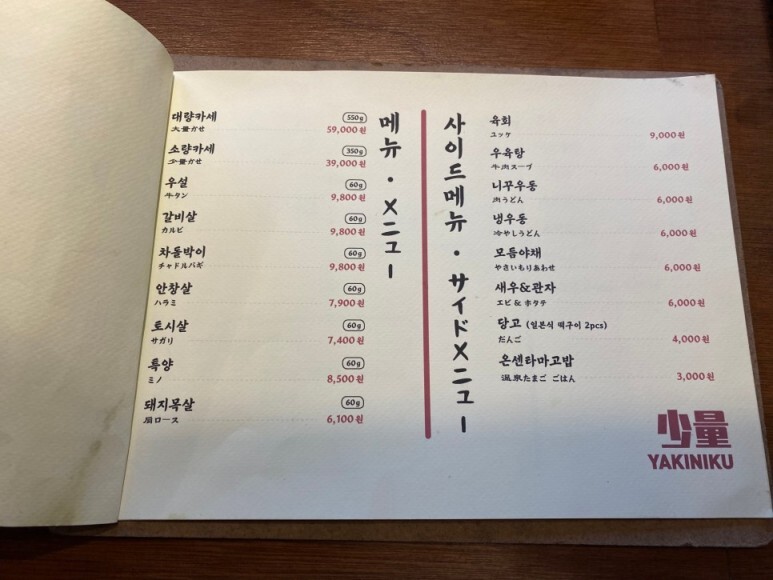 메뉴 · メニュー
대량카세 550g
大量かせ 59,000원
소량카세 350g
少量かせ 39,000원
우설 60g
牛タン 9,800원
갈비살 60g
カルビ 9,800원
차돌박이 60g
チャドルバギ 9,800원
안창살 60g
ハラミ 7,900원
토시살 60g
サガリ 7,400원
특양 60g
ミノ 8,500원
돼지목살 60g
肩ロース 6,100원
사이드메뉴 · サイドメニュー
육회
ユッケ 9,000원
우육탕
牛肉スープ 6,000원
니꾸우동
肉うどん 6,000원
냉우동
冷やしうどん 6,000원
모듬야채
やさいもりあわせ 6,000원
새우&관자
エビ & ホタテ 6,000원
당고 (일본식 떡구이 2pcs)
だんご 4,000원
온센타마고밥
温泉たまご ごはん 3,000원
少量
YAKINIKU